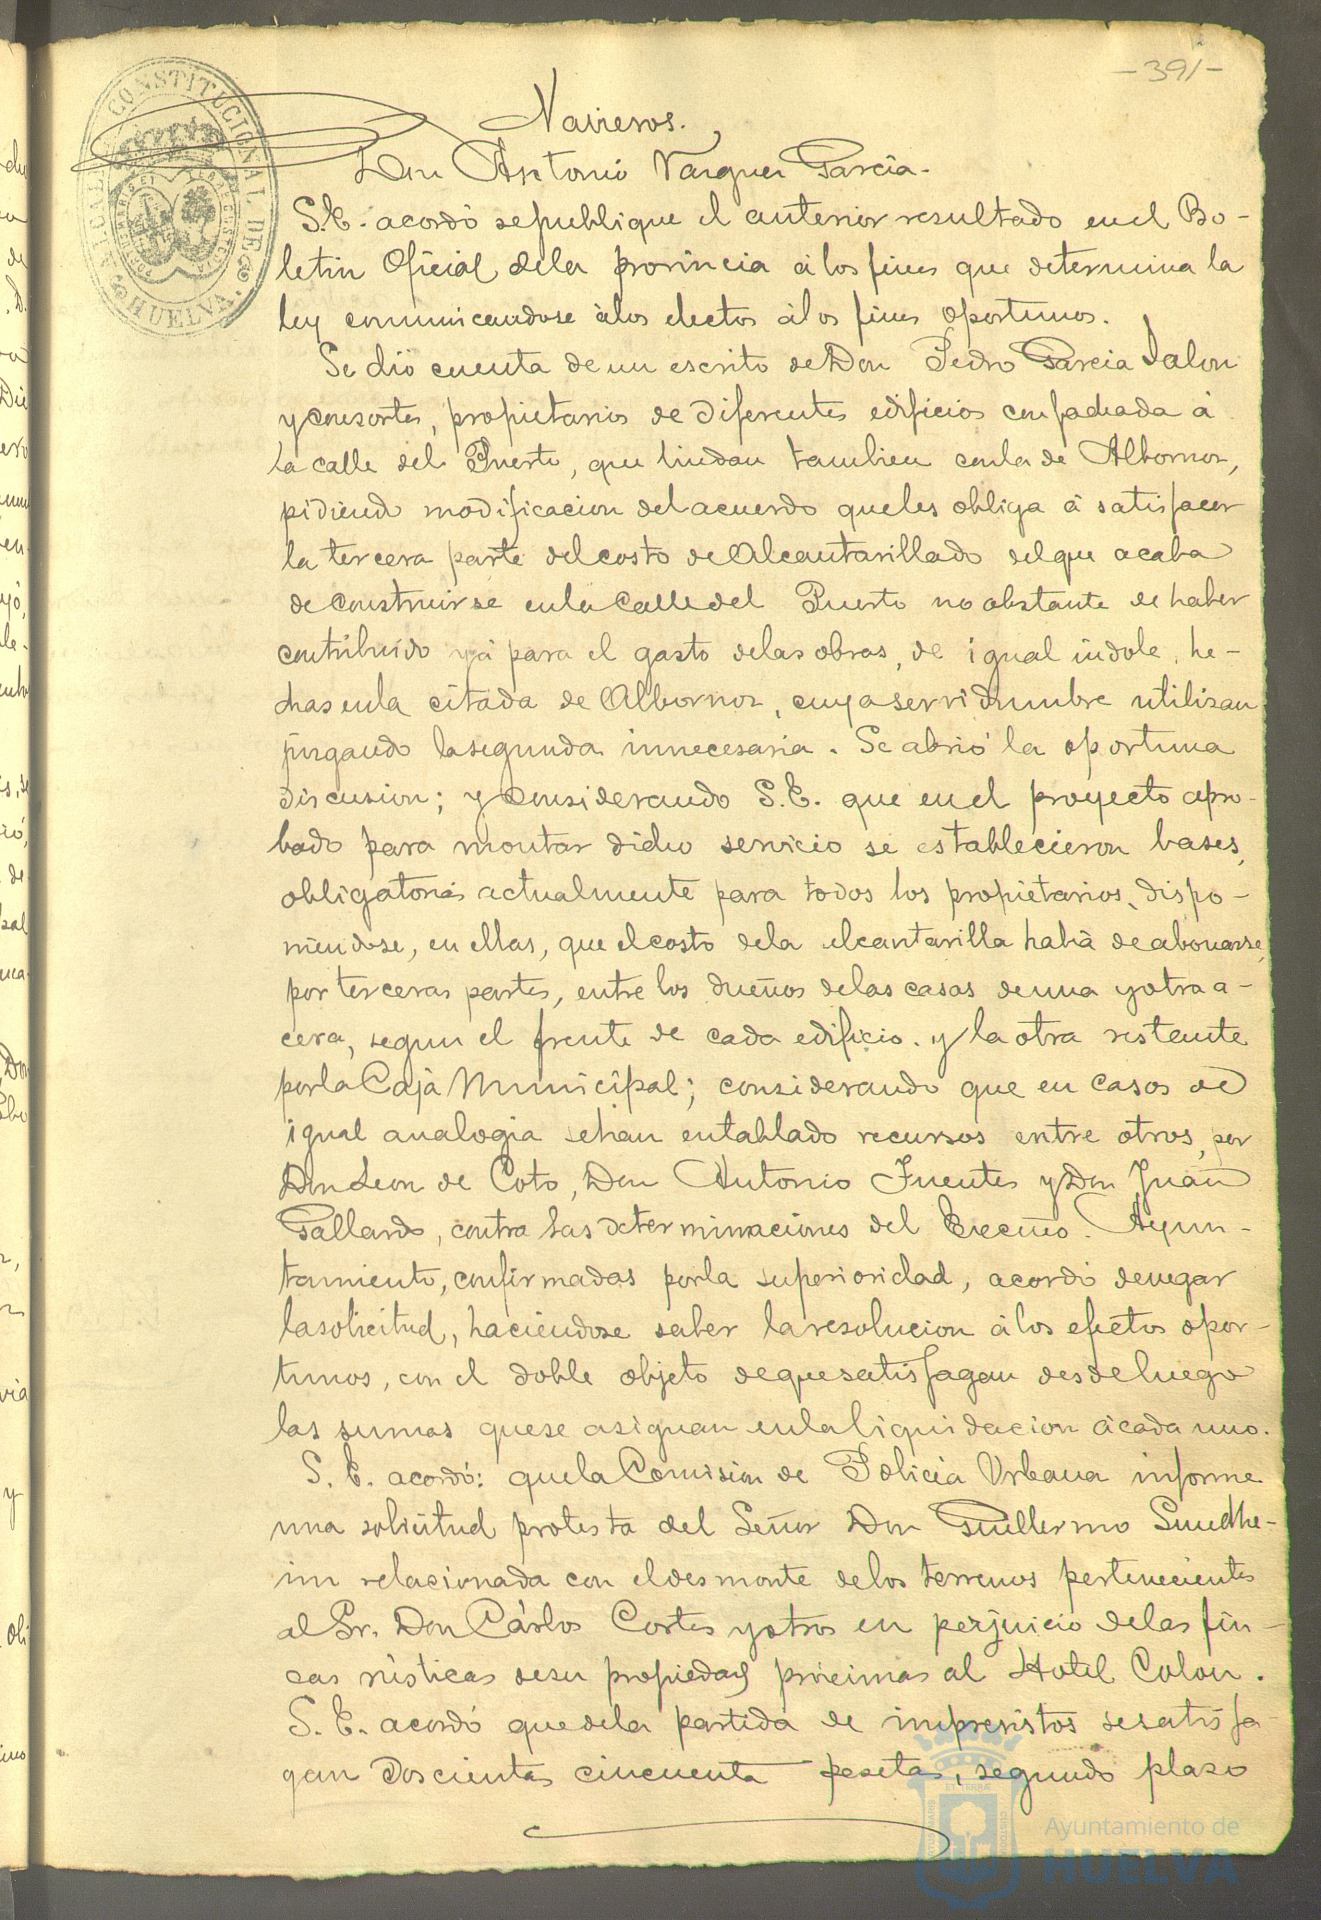 -391-
ALCALDIA CONSTITUCIONAL DE HUELVA.
Navieros.
Don Antonio Vazquez Garcia.
S.E. acordó se publique el anterior resultado en el Bo-
letin Oficial de la provincia á los fines que determina la
ley comunicandose á los electos á los fines oportunos.
Se dió cuenta de un escrito de Don Pedro Garcia Jalon
y consortes, propietarios de diferentes edificios con fachada á
la calle del Puerto, que lindan tambien con la de Albornoz,
pidiendo modificacion del acuerdo que les obliga á satisfacer
la tercera parte del costo de Alcantarillado del que acaba
de construirse en la Calle del Puerto no obstante de haber
contribuido yá para el gasto de las obras, de igual indole, he-
chas en la citada de Albornoz, cuya servidumbre utilizan
juzgando la segunda innecesaria. Se abrió la oportuna
discusion; y considerando S.E. que en el proyecto apro-
bado para montar dicho servicio se establecieron bases,
obligatorias actualmente para todos los propietarios, dispo-
niendose, en ellas, que el costo de la alcantarilla habia de abonarse,
por terceras partes, entre los dueños de las casas de una y otra a-
cera, segun el frente de cada edificio. y la otra restante
por la Caja Municipal; considerando que en casos de
igual analogia se han entablado recursos entre otros, por
Don Leon de Coto, Don Antonio Fuentes y Don Juan
Gallardo, contra las determinaciones del Excmo. Ayun-
tamiento, confirmadas por la superioridad, acordó denegar
la solicitud, haciendose saber la resolucion á los efectos opor-
tunos, con el doble objeto de que satisfagan desde luego
las sumas que se asignan en la liquidacion á cada uno.
S. E. acordó: que la Comision de Policia Urbana informe
una solicitud protesta del Señor Don Guillermo Sundhe-
im relacionada con el desmonte de los terrenos pertenecientes
al Sr. Don Cárlos Cortes y otros en perjuicio de las fin-
cas rústicas de su propiedad próximas al Hotel Colon.
S. E. acordó que de la partida de imprevistos se satisfa-
gan Doscientas cincuenta pesetas, segundo plazo
Ayuntamiento de
HUELVA